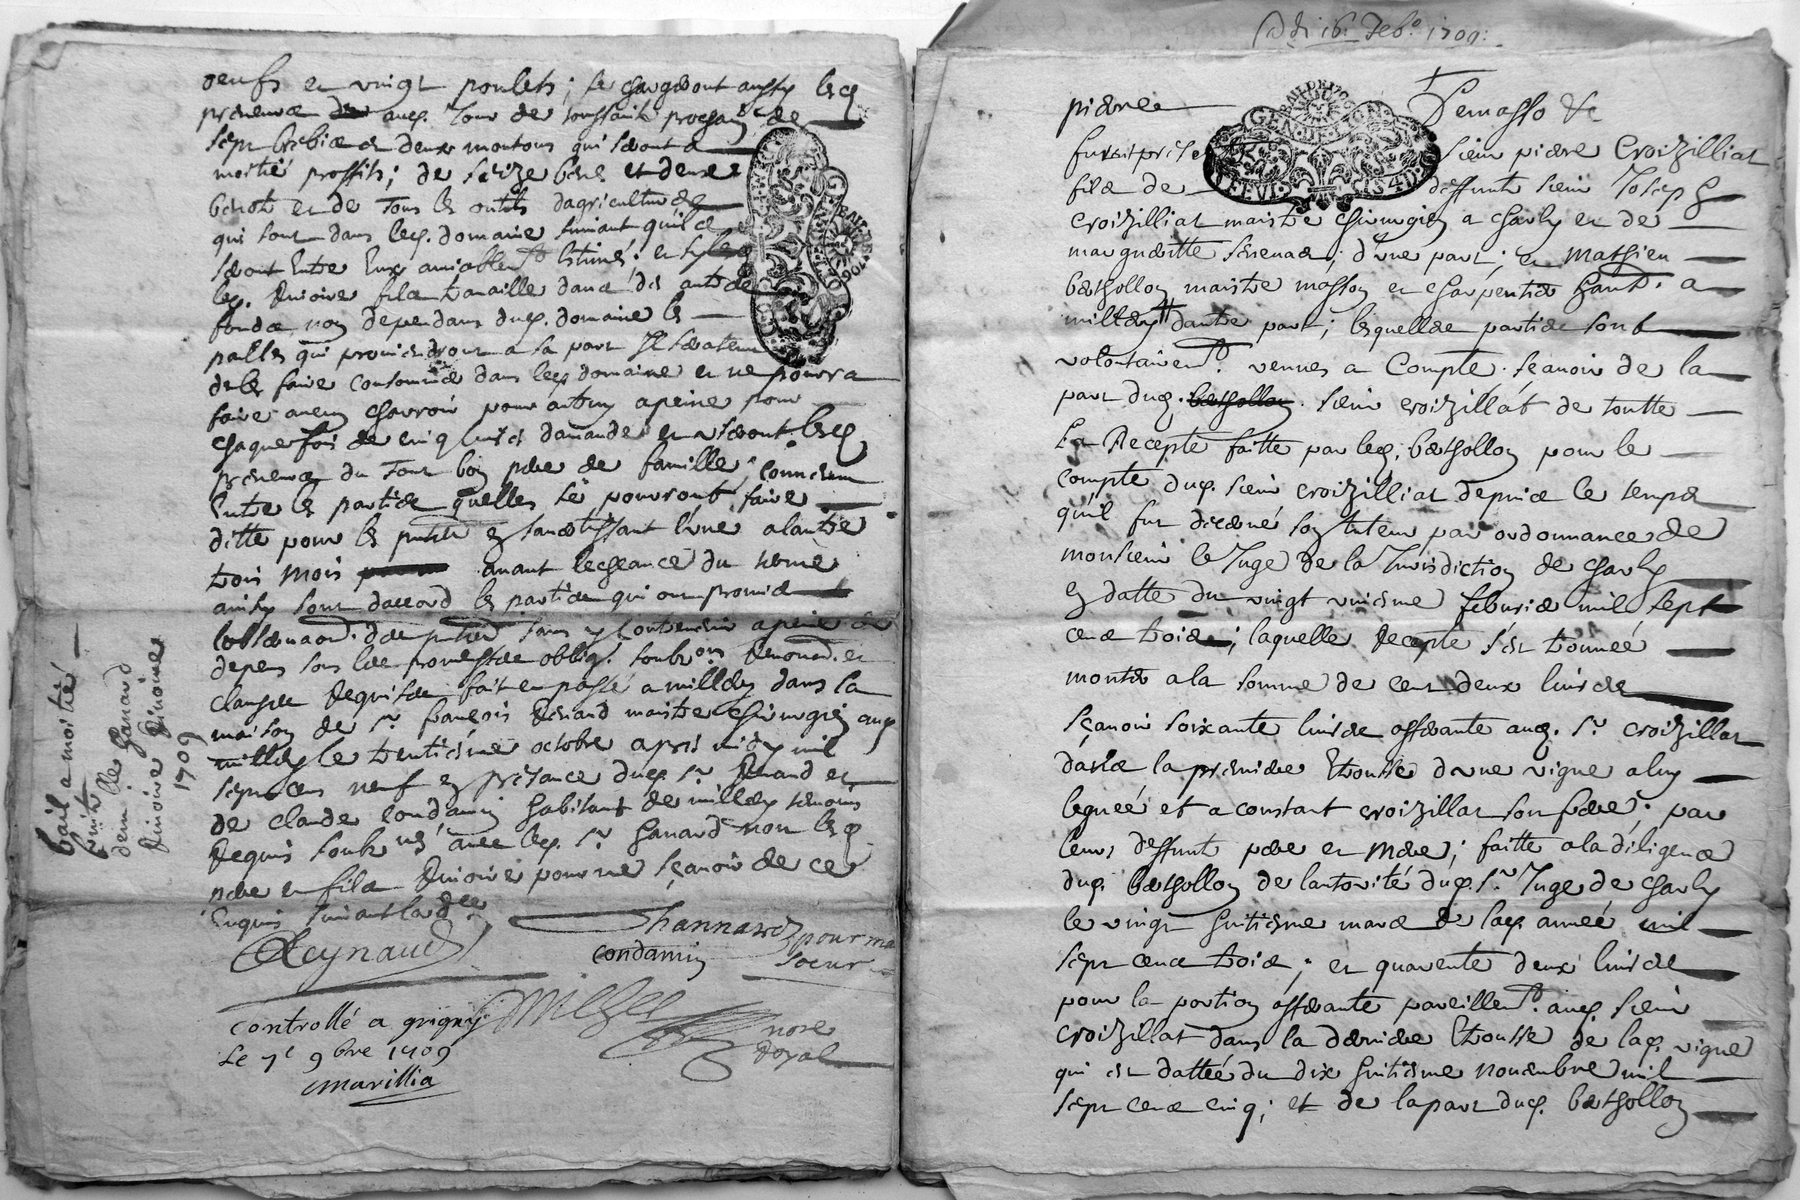 oeufs et vingt poulets; se chargeront aussy lesd
preneurs aud. jour de toussaint prochain de
sept brebis et deux moutons qui seront a
moitié proffits; de seize benes et deux
benots et de tous les outils dagriculture
qui sont dans led. domaine suivant quils
seront entre eux amiablemt estimés; et sy les
led. Rivoire fils travaille dans des autres
fonds non dependans dud. domaine les
pailles qui proviendront a sa part Il sera tenu
de les faire consommer dans led domaine et ne pourra
faire aucun charroir pour autruy a peine pour
chaque fois de cinq livres damande et useront lesd
preneurs du tout bon pere de famille; convenu
entre les parties quelles se pourront faire
ditte pour les en savertissant l'une a lautre
trois mois avant lecheance du terme
ainsy sont daccord les parties qui ont promis
lobserver sans y contrevenir a peine de
depens sous les promesses oblig. soubons renond. et
clauses requises fait et passé a millery dans la
maison de sr françois Renaud maistre chirurgien aud
millery le trentiesme octobre apres midy mil
sept cens neuf en presance dud. sr Renaud et
de claude condamin habitant de millery temoins
requis soubznés avec led. sr hanard non lesd
pere et fils Rivoire pour ne sçavoir de ce
enquis suivant lord.
Reynaud
Channard pour ma
soeur
condamin
nore
Royal
Controllé a grigny
Le 7e 9bre 1709
Marillia
bail a moitié
demlle hanard
Rivoire Rivoire
1709
16 Febo 1709:
pierre
GEN. DE LION
BAIL DE 1706
Demasso &c
furent presens
sieur pierre Croizilliat
fils de
deffunt sieur Joseph
croizilliat maistre chirurgien a charly et de
margueritte, d'une part; et Mathieu
berthollon maistre masson et charpentier habt. a
millery dautre part; lesquelles parties sont
volontairemt. venues a Compte. scavoir de la
part dud. berthollon. sieur croizillat de toutte
la Recepte faitte par led. berthollon pour le
compte dud. sieur croizilliat depuis le temps
quil fut decerné son tuteur par ordonnance de
monsieur le Juge de la Jurisdiction de charly
en datte du vingt uniesme febvrier mil sept
cens trois; laquelle Recepte s'est trouvée
monter a la somme de cent deux livres
sçavoir soixante livres afferante aud. sr. croizillat
dans la premiere trousse d'une vigne a luy
leguée et a constant croizillat son frere; par
leurs deffunt pere et mere; faitte a la diligence
dud. berthollon de lautorité dud. sr Juge de charly
le vingt huitiesme mars de lad. année mil
sept cens trois; et quarente deux livres
pour la portion afferante pareillemt. aud. sieur
croizillat dans la derniere trousse de lad. vigne
qui est dattée du dix huitiesme novembre mil
sept cens cinq; et de la part dud. berthollon